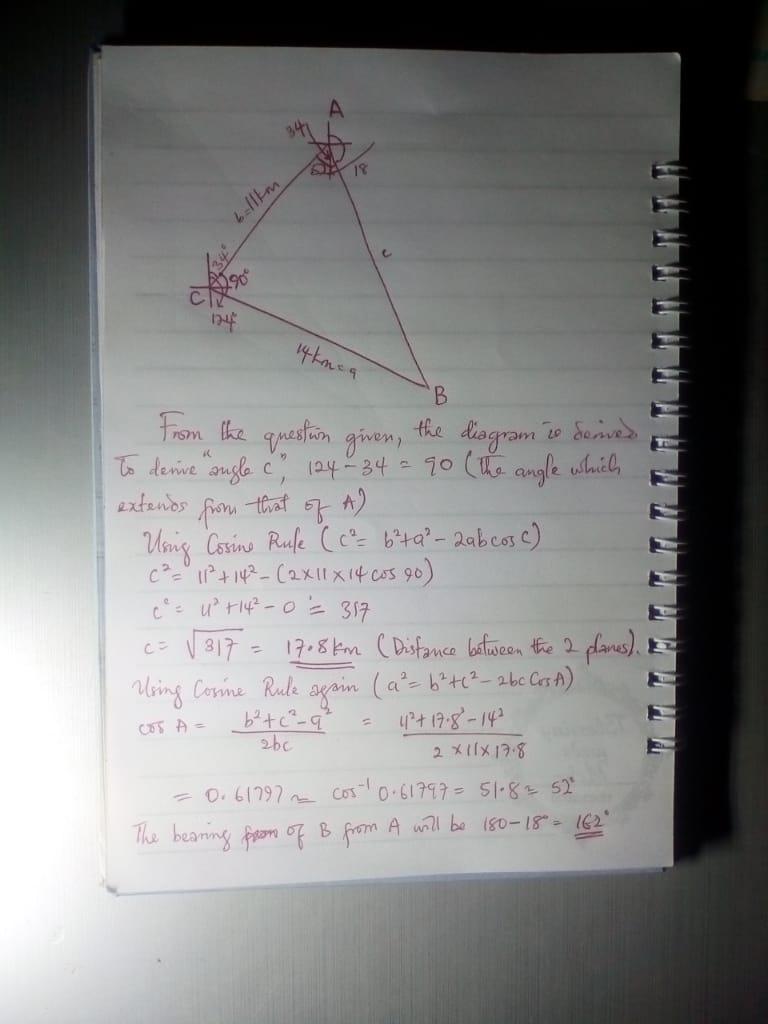 A
34
52
18
b=11km
c
34°
90°
C
124°
14km=a
B
From the question given, the diagram is derived
To derive "angle C", 124-34 = 90 (The angle which
extends from that of A)
Using Cosine Rule (c²= b²+a²- 2ab cos C)
c²= 11²+14²-(2x11x14 cos 90)
c²= 11²+14²-0 = 317
c= √317 = 17.8km (Distance between the 2 planes).
Using Cosine Rule again (a²= b²+c²-2bc Cos A)
cos A = b²+c²-a² / 2bc = 11²+17.8²-14² / 2 x11x17.8
= 0.61797 ≈ cos⁻¹ 0.61797 = 51.8 ≈ 52°
The bearing of B from A will be 180-18° = 162°